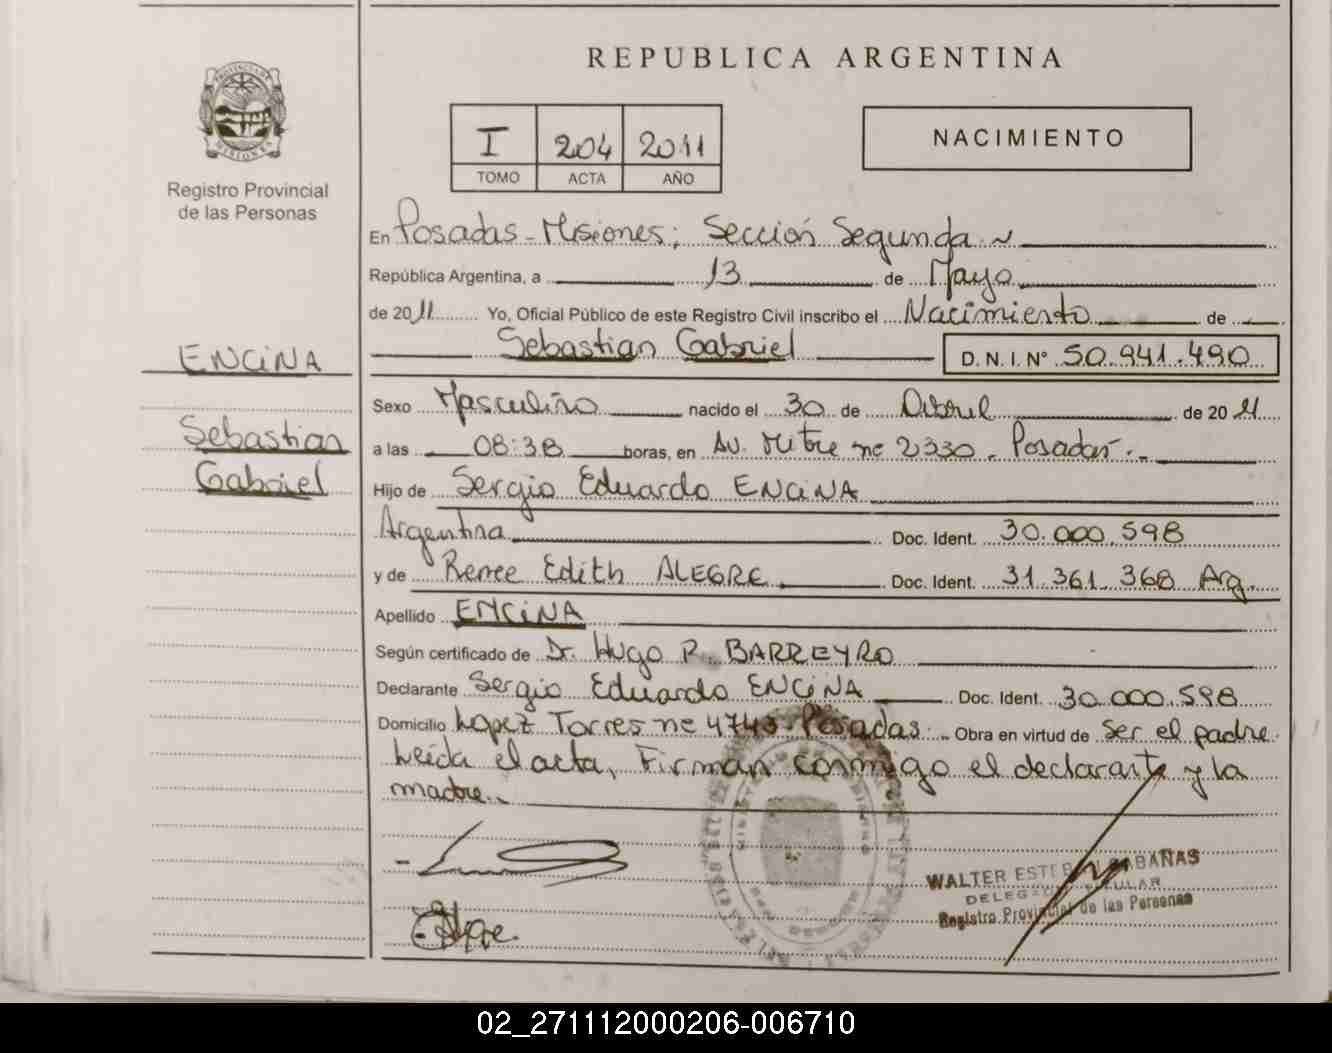 REPUBLICA ARGENTINA
PROVINCIA DE MISIONES
Registro Provincial
de las Personas
I 204 2011
TOMO ACTA AÑO
NACIMIENTO
En Posadas - Misiones; Sección Segunda
República Argentina, a 13 de Mayo
de 2011 Yo, Oficial Público de este Registro Civil inscribo el Nacimiento de
Sebastian Gabriel D. N. I. Nº 50.941.490
ENCINA
Sebastian
Gabriel
Sexo Masculino nacido el 30 de Abril de 2011
a las 08:38 horas, en Av. Mitre nº 2330. Posadas.-
Hijo de Sergio Eduardo ENCINA
Argentina Doc. Ident. 30.000.598
y de Renee Edith ALEGRE Doc. Ident. 31.361.368 Arg.
Apellido ENCINA
Según certificado de Dr. Hugo R. BARREYRO
Declarante Sergio Eduardo ENCINA Doc. Ident. 30.000.598
Domicilio Lopez Torres nº 4743 - Posadas.- Obra en virtud de ser el padre.
Leída el acta, Firman conmigo el declarante y la
madre.
WALTER ESTEBAN CABAÑAS
DELEGADO TITULAR
Registro Provincial de las Personas
02_271112000206-006710